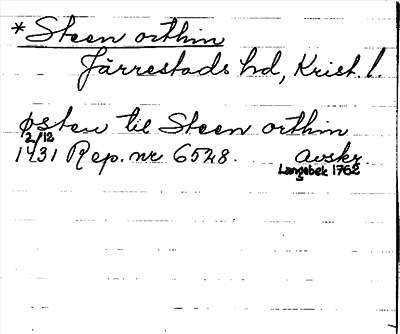 * Steen orthin
Järrestads hd, Krist. l.
østen til Steen orthin
2/12
1431 Rep. nr 6528. Avskr.
Langebek 1762